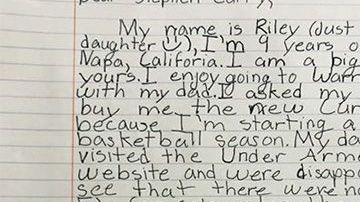 Dear Stephen Curry,
My name is Riley (Just
daughter), I'm 9 years o
Napa, Califoria. I am a big
yours. I enjoy going to Warr
with my dad. I asked my
buy me the new Cur
because I'm starting a
basketball season. My da
visited the Under Arm
website and were disappo
see that there were n